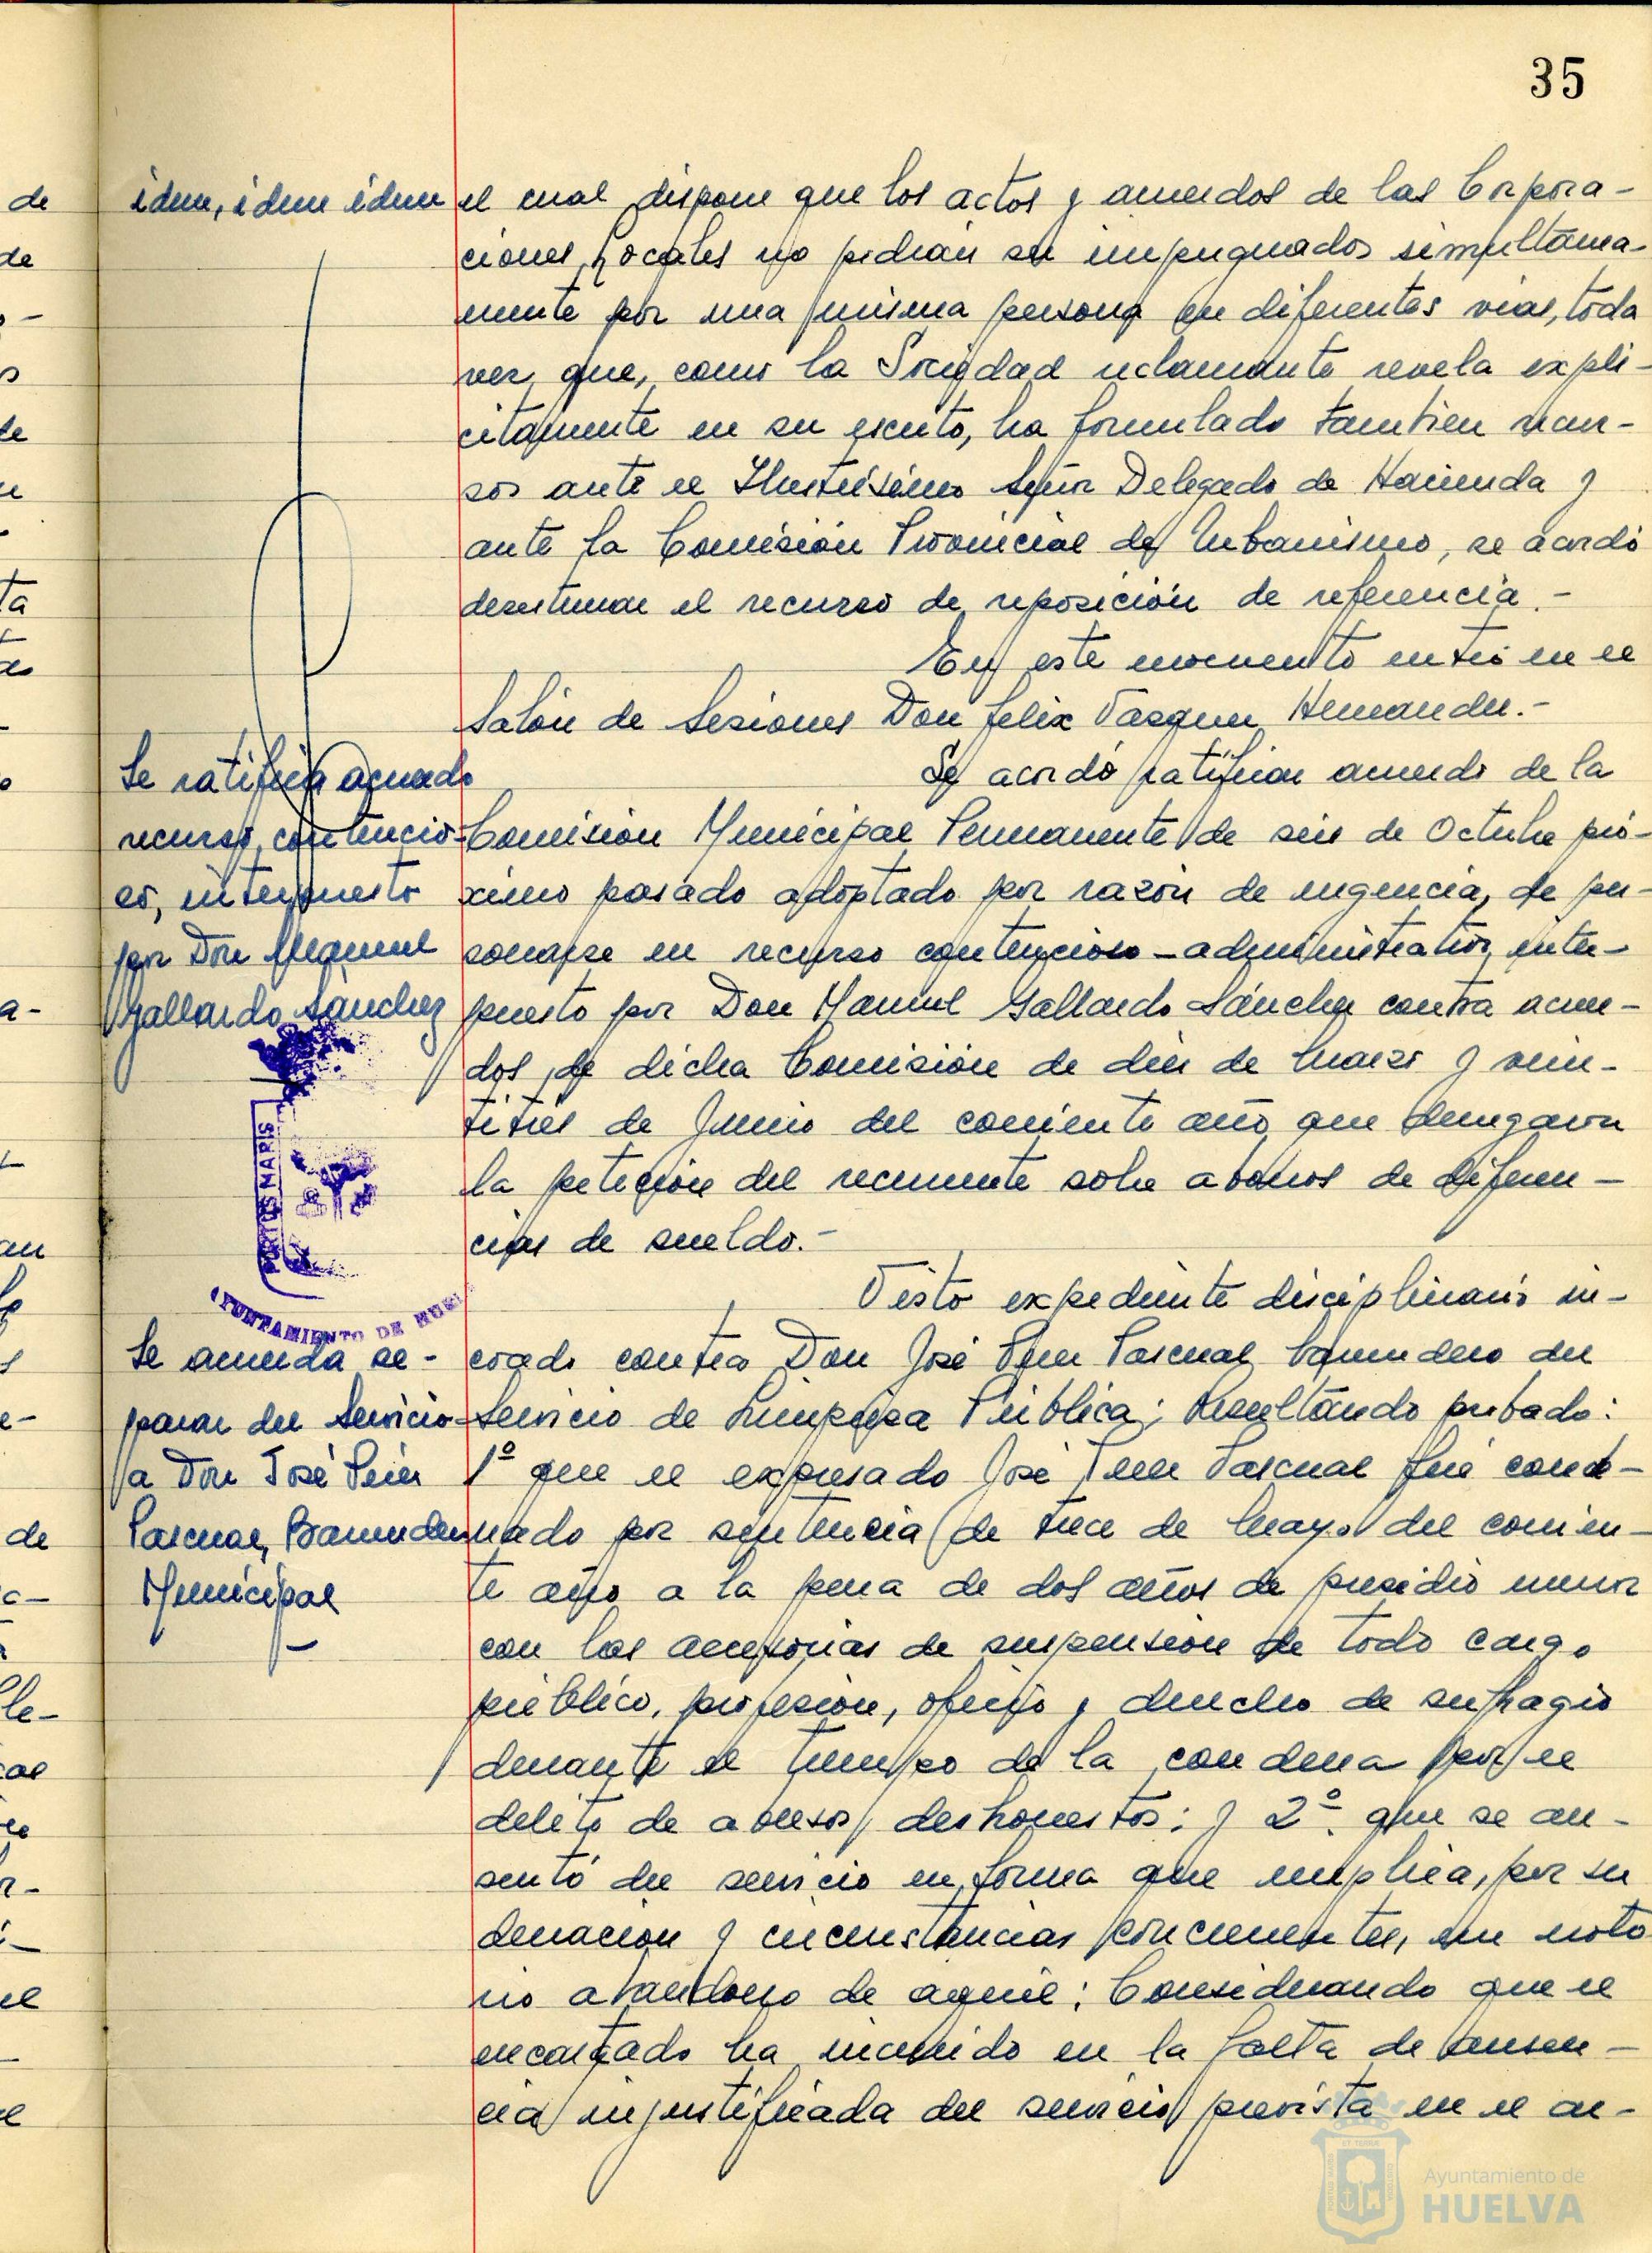 35
idem, idem idem
el cual dispone que los actos y acuerdos de las Corpora-
ciones Locales no podrán ser impugnados simultánea-
mente por una misma persona en diferentes vías, toda
vez que, como la Sociedad reclamante revela expli-
citamente en su escrito, ha formulado tambien recur-
sos ante el Ilustrísimo Señor Delegado de Hacienda y
ante la Comisión Provincial de Urbanismo, se acordó
desestimar el recurso de reposición de referencia.-
En este momento entró en el
Salón de Sesiones Don Felix Vazquez Hernandez.-
Se ratifica acuerdo
recurso contencio-
so, interpuesto
por Don Manuel
Gallardo Sánchez
Se acordó ratificar acuerdo de la
Comisión Municipal Permanente de seis de Octubre pró-
ximo pasado adoptado por razón de urgencia, de per-
sonarse en recurso contencioso-administrativo, inter-
puesto por Don Manuel Gallardo Sánchez contra acuer-
dos de dicha Comisión de diez de Marzo y vein-
titrés de Junio del corriente año que denegaron
la petición del recurrente sobre abonos de diferen-
cias de sueldo.-
PORTUS MARIS
AYUNTAMIENTO DE HUEL
Se acuerda se-
parar del Servicio
a Don José Pérez
Pascual, Barrendero
Municipal
Visto expediente disciplinario in-
coado contra Don José Pérez Pascual, barrendero del
Servicio de Limpieza Pública; Resultando probado:
1º que el expresado José Pérez Pascual fué conde-
nado por sentencia de trece de Mayo del corrien-
te año a la pena de dos años de presidio menor
con las accesorias de suspensión de todo cargo
público, profesión, oficio y derecho de sufragio
durante el tiempo de la condena por el
delito de abusos deshonestos; y 2º que se au-
sentó del servicio en forma que implica, por su
duración y circunstancias concurrentes, un noto
rio abandono de aquél; Considerando que el
encartado ha incurrido en la falta de ausen-
cia injustificada del servicio prevista en el ar-
Ayuntamiento de
HUELVA